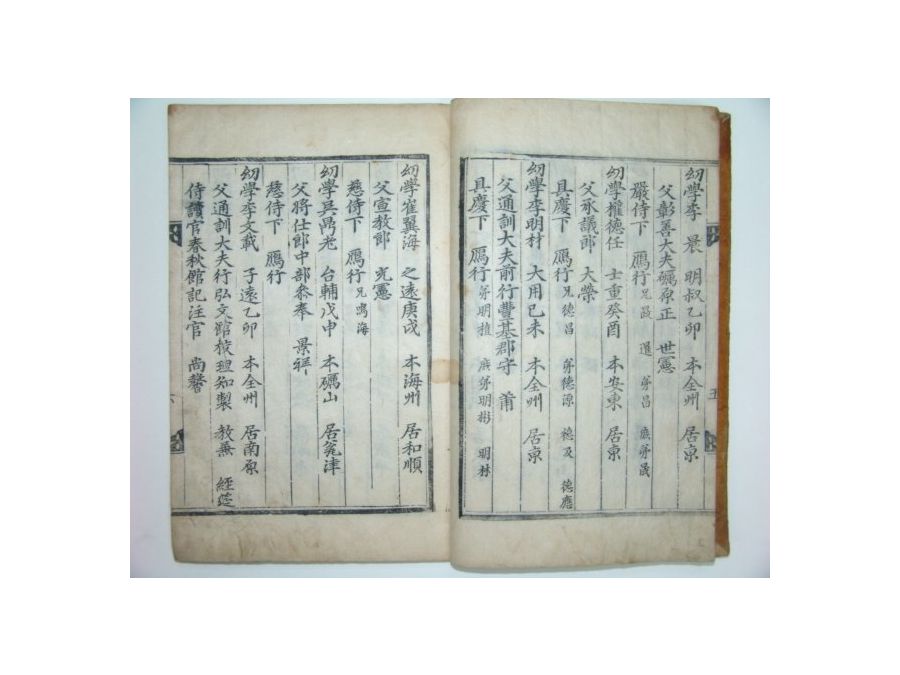 幼學李 晨 明叔乙卯 本全州 居京
父彰善大夫礪原正 世憲
嚴侍下 鴈行兄 暹 弟昌 庶弟晟
幼學權德任 士重癸酉 本安東 居京
父承議郎 大榮
具慶下 鴈行兄德昌 弟德源 德及 德應
幼學李明材 大用己未 本全州 居京
父通訓大夫前行豊基郡守 莆
具慶下 鴈行弟明推 庶弟明彬 明林
幼學崔翼海 之遠庚戌 本海州 居和順
父宣敎郎 光憲
慈侍下 鴈行兄鳴海
幼學吳 老 台輔戊申 本礪山 居瓮津
父將仕郎中部叅奉 景祥
慈侍下 鴈行
幼學李文載 子遠乙卯 本全州 居南原
父通訓大夫行弘文館校理知製 敎兼 經筵
侍讀官春秋館記注官 尚馨
五
六